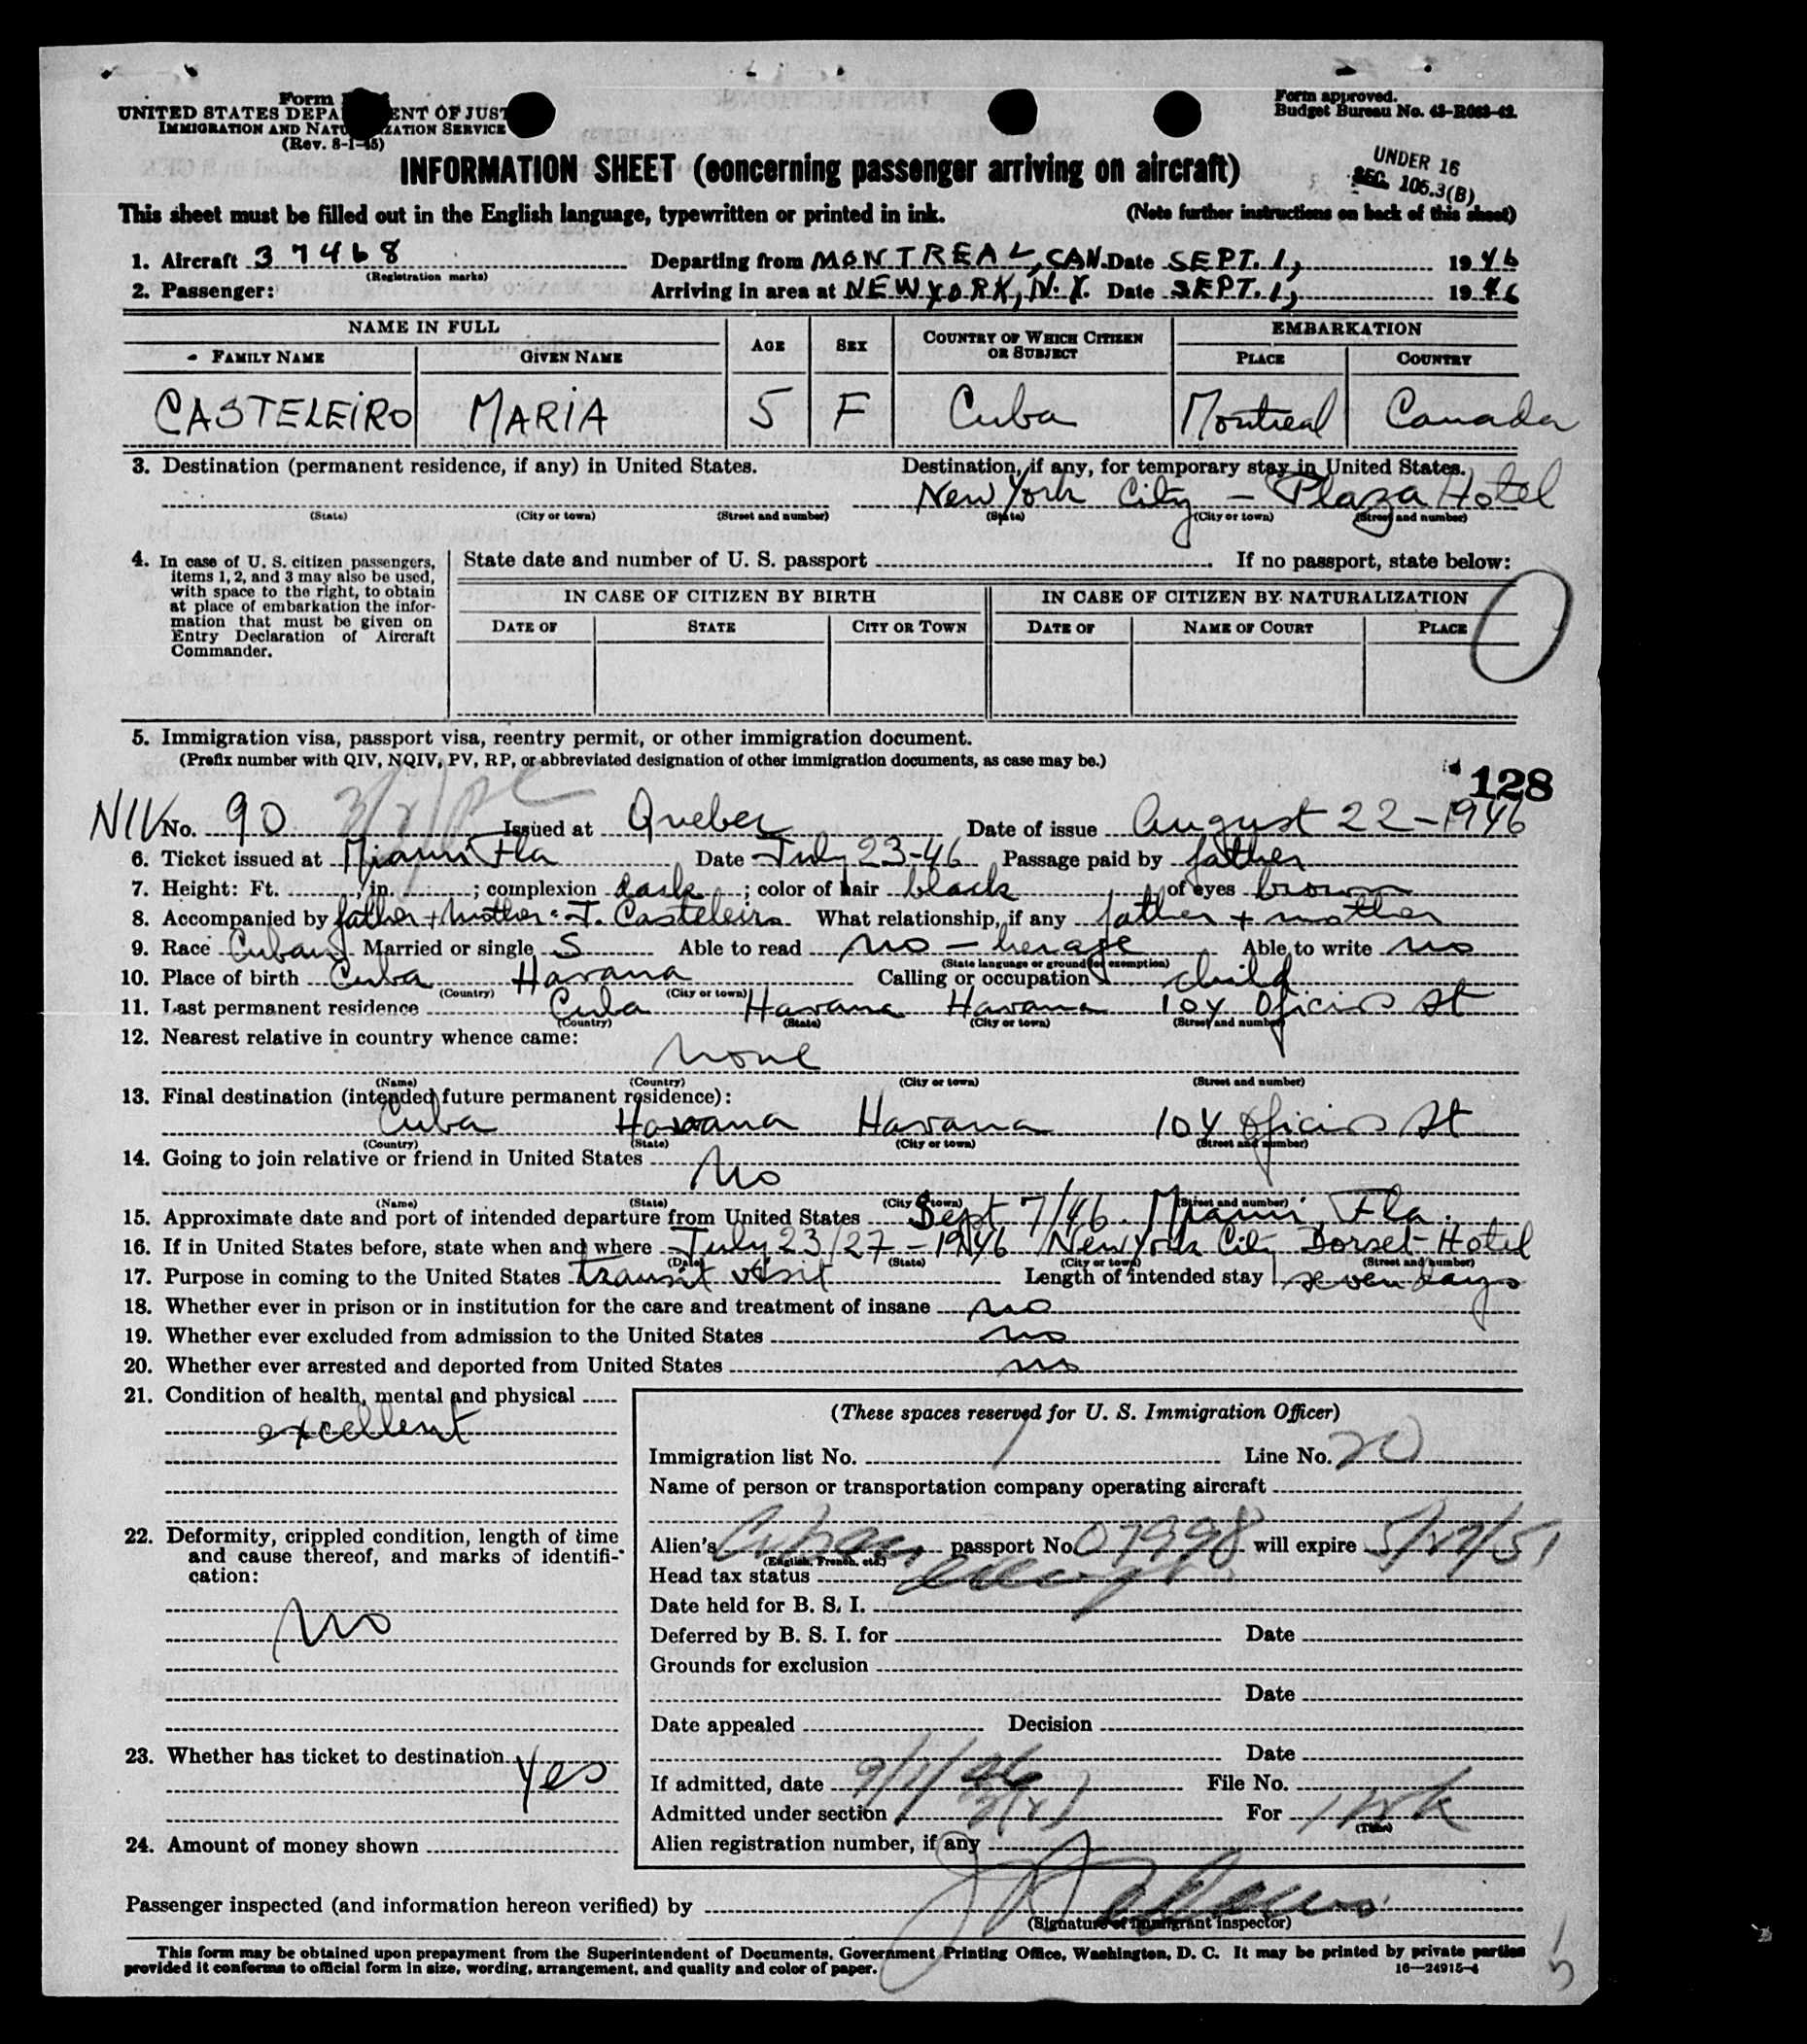 Form
UNITED STATES DEPA ENT OF JUST
IMMIGRATION AND NATU ZATION SERVICE
(Rev. 8-1-45)
Form approved.
Budget Bureau No. 43-R083-42.
INFORMATION SHEET (concerning passenger arriving on aircraft)
UNDER 16
SEC. 105.3(B)
This sheet must be filled out in the English language, typewritten or printed in ink. (Note further instructions on back of this sheet)
1. Aircraft 37468 Departing from MONTREAL, CAN. Date SEPT. 1, 1946
(Registration marks)
2. Passenger: Arriving in area at NEW YORK, N.Y. Date SEPT. 1, 1946
NAME IN FULL EMBARKATION
FAMILY NAME GIVEN NAME AGE SEX COUNTRY OF WHICH CITIZEN OR SUBJECT PLACE COUNTRY
CASTELEIRO MARIA 5 F Cuba Montreal Canada
3. Destination (permanent residence, if any) in United States. Destination, if any, for temporary stay in United States.
New York City - Plaza Hotel
(State) (City or town) (Street and number) (State) (City or town) (Street and number)
4. In case of U. S. citizen passengers,
items 1, 2, and 3 may also be used,
with space to the right, to obtain
at place of embarkation the infor-
mation that must be given on
Entry Declaration of Aircraft
Commander.
State date and number of U. S. passport If no passport, state below:
IN CASE OF CITIZEN BY BIRTH IN CASE OF CITIZEN BY NATURALIZATION
DATE OF STATE CITY OR TOWN DATE OF NAME OF COURT PLACE
5. Immigration visa, passport visa, reentry permit, or other immigration document.
(Prefix number with QIV, NQIV, PV, RP, or abbreviated designation of other immigration documents, as case may be.)
128
NIV No. 90 Issued at Quebec Date of issue August 22-1946
6. Ticket issued at Miami Fla Date July 23-46 Passage paid by father
7. Height: Ft. in. ; complexion dark ; color of hair black of eyes brown
8. Accompanied by father + mother: J. Casteleiro What relationship, if any father + mother
9. Race Cuban Married or single S Able to read no - Able to write no
(State language or ground for exemption)
10. Place of birth Cuba Havana Calling or occupation child
(Country) (City or town)
11. Last permanent residence Cuba Havana Havana 104 Oficios St
(Country) (State) (City or town) (Street and number)
12. Nearest relative in country whence came:
none
(Name) (Country) (City or town) (Street and number)
13. Final destination (intended future permanent residence):
Cuba Havana Havana 104 Oficios St
(Country) (State) (City or town) (Street and number)
14. Going to join relative or friend in United States
No
(Name) (State) (City or town) (Street and number)
15. Approximate date and port of intended departure from United States Sept 7/46. Miami, Fla.
16. If in United States before, state when and where July 23/27-1946 New York City Dorset Hotel
(Date) (State) (City or town) (Street and number)
17. Purpose in coming to the United States transit visit Length of intended stay seven days
18. Whether ever in prison or in institution for the care and treatment of insane no
19. Whether ever excluded from admission to the United States no
20. Whether ever arrested and deported from United States no
21. Condition of health, mental and physical
excellent
22. Deformity, crippled condition, length of time
and cause thereof, and marks of identifi-
cation:
No
23. Whether has ticket to destination
Yes
24. Amount of money shown
(These spaces reserved for U. S. Immigration Officer)
Immigration list No. 1 Line No. 20
Name of person or transportation company operating aircraft
Alien's Cuban passport No. 07998 will expire 5/27/51
(English, French, etc.)
Head tax status exempt
Date held for B. S. I.
Deferred by B. S. I. for Date
Grounds for exclusion
Date
Date appealed Decision
Date
If admitted, date 9/1/46 File No.
Admitted under section For 1 wk
(Time)
Alien registration number, if any
Passenger inspected (and information hereon verified) by
(Signature of immigrant inspector)
This form may be obtained upon prepayment from the Superintendent of Documents, Government Printing Office, Washington, D. C. It may be printed by private parties
provided it conforms to official form in size, wording, arrangement, and quality and color of paper. 16—24915-4